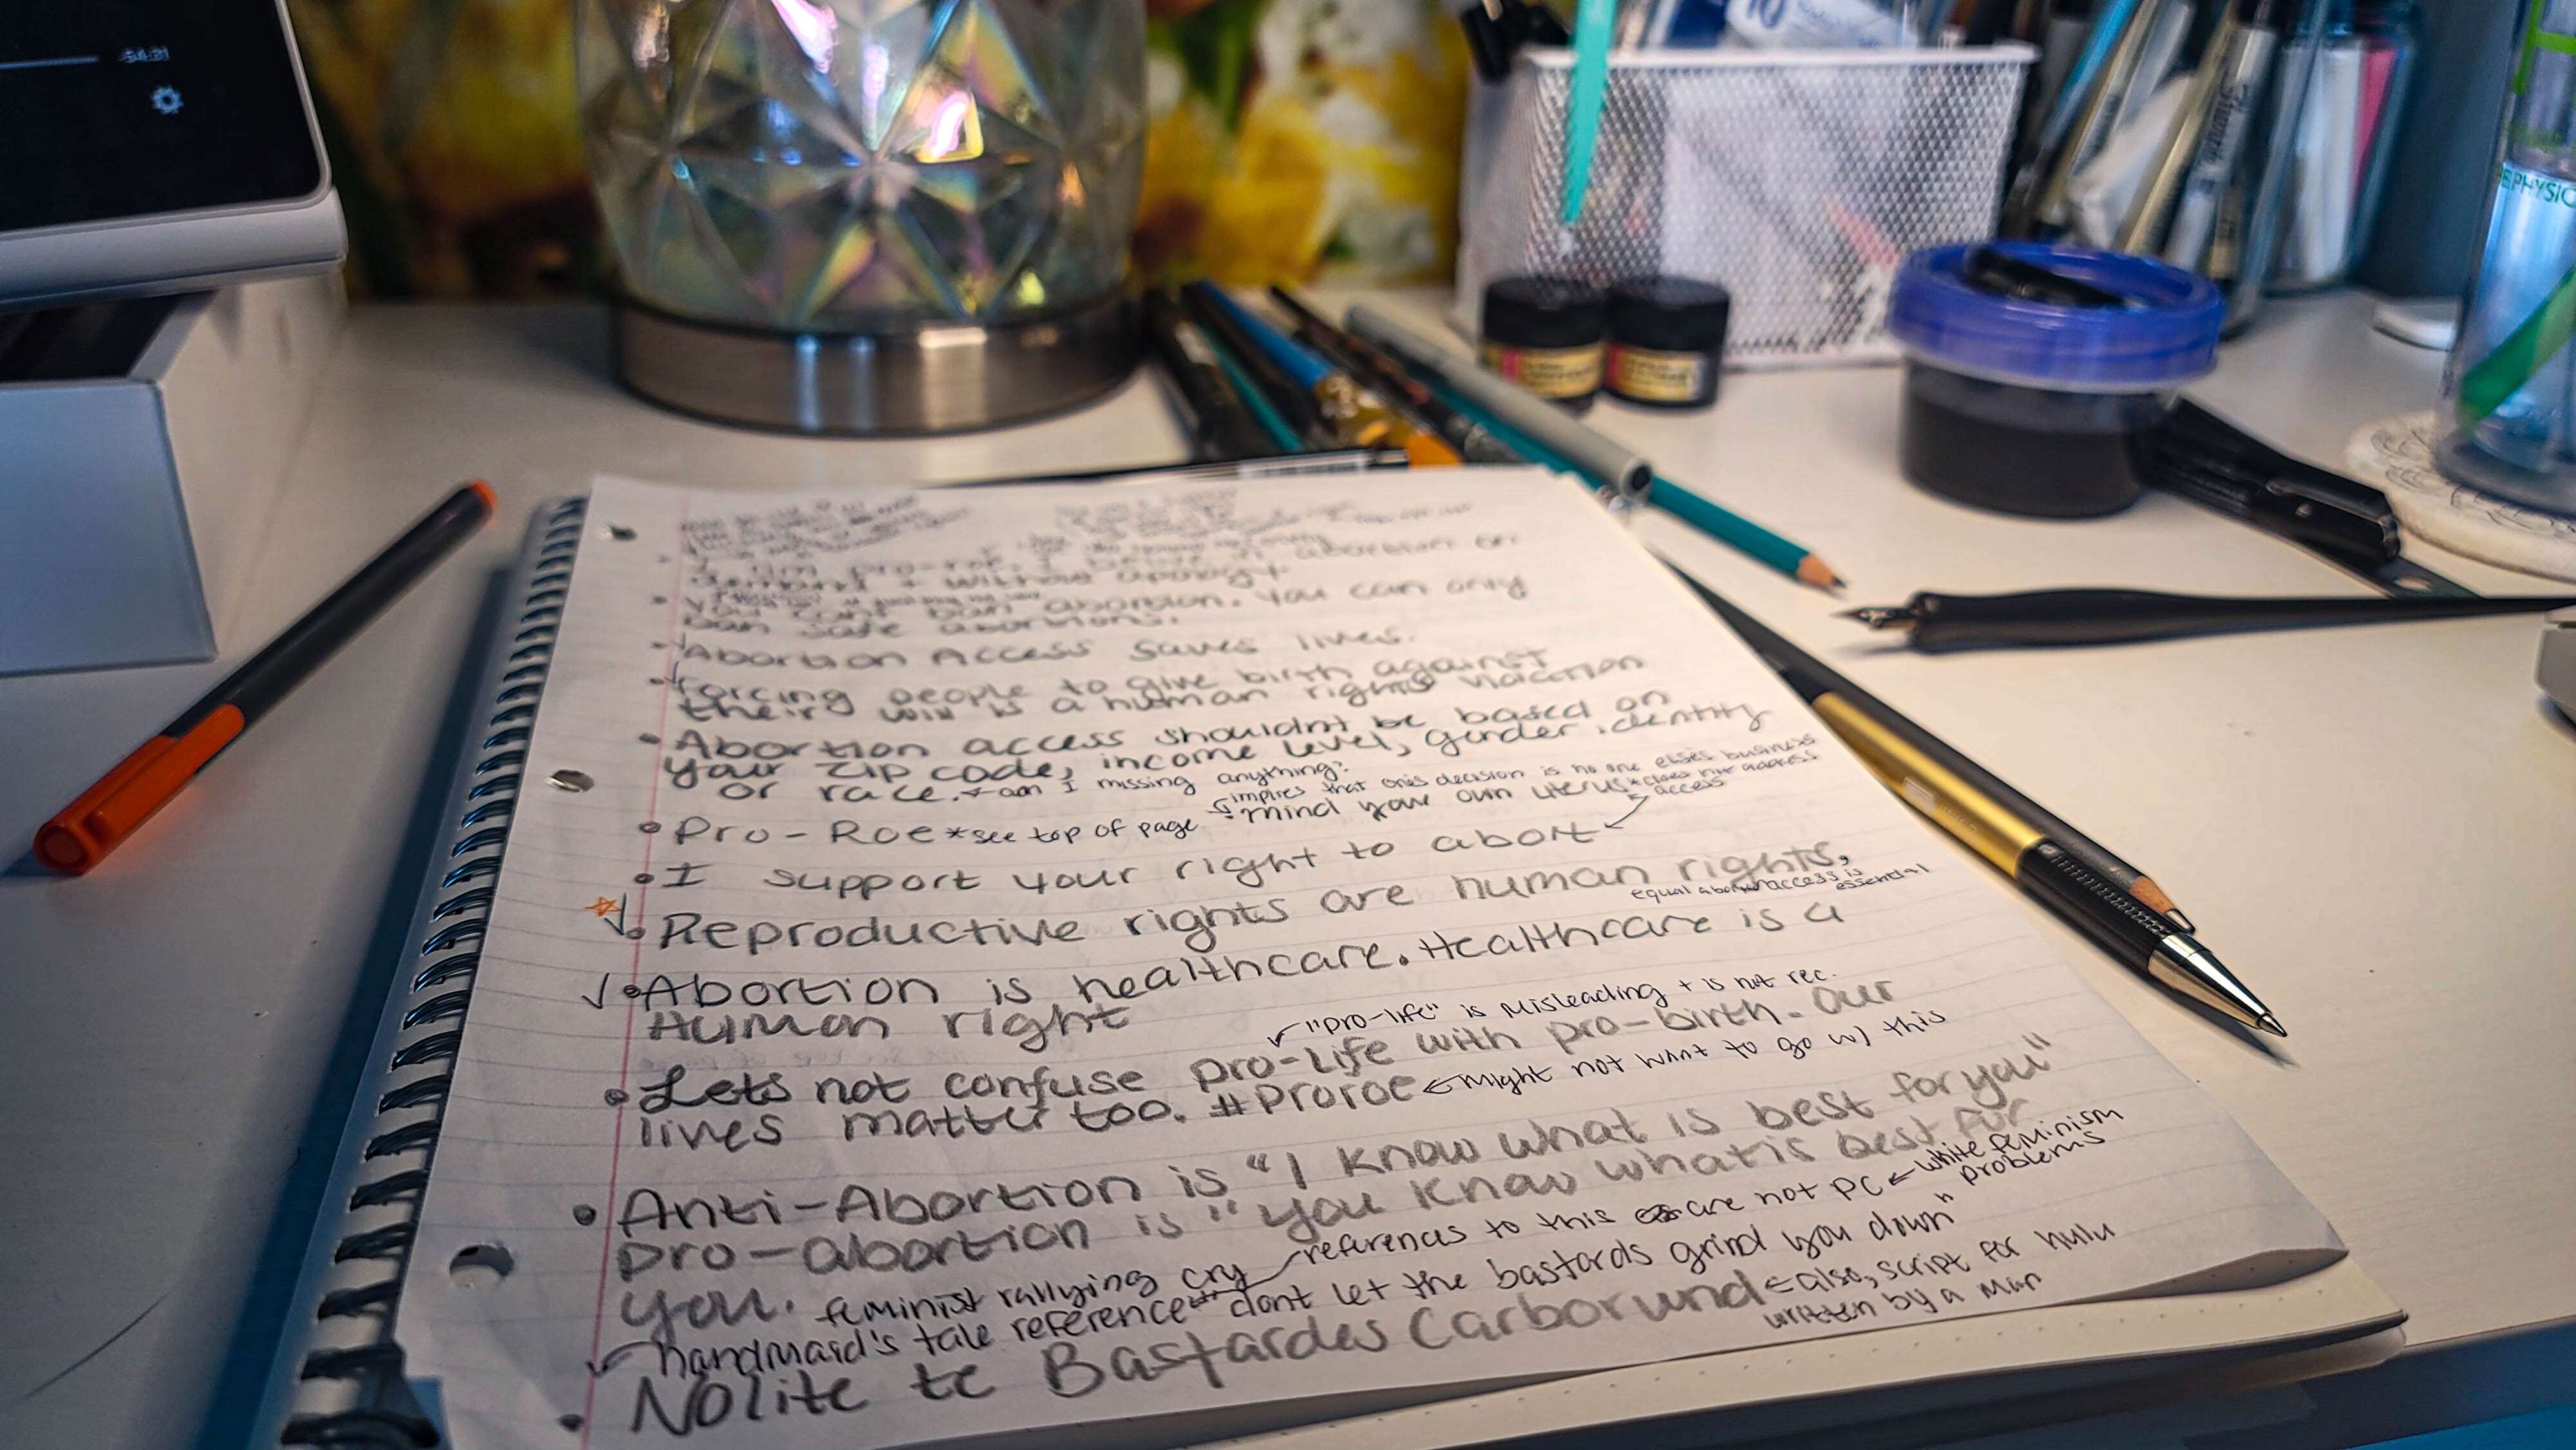 -54:31
10
EPHYSIC
I am pro-roe. I believe in abortion on
demand + without apology.
You can't ban abortion. You can only
ban safe abortions.
Abortion Access saves lives.
Forcing people to give birth against
their will is a human rights violation
Abortion access shouldnt be based on
your zip code, income level, gender identity
or race. am I missing anything?
impires that one's decision is no one elses business
*does not address
access
Pro-Roe *see top of page mind your own uterus
I support your right to abort
Reproductive rights are human rights,
equal abortion access is
essential
Abortion is healthcare. Healthcare is a
Human right
"pro-life" is misleading + is not rec.
Lets not confuse pro-life with pro-birth. our
lives matter too. #Proroe might not want to go w/ this
Anti-Abortion is "I know what is best for you"
pro-abortion is "you know what is best for
you. white feminism
problems
feminist rallying cry references to this are not PC
handmaid's tale reference dont let the bastards grind you down"
Nolite te Bastardes Carborund also, script for hulu
written by a man